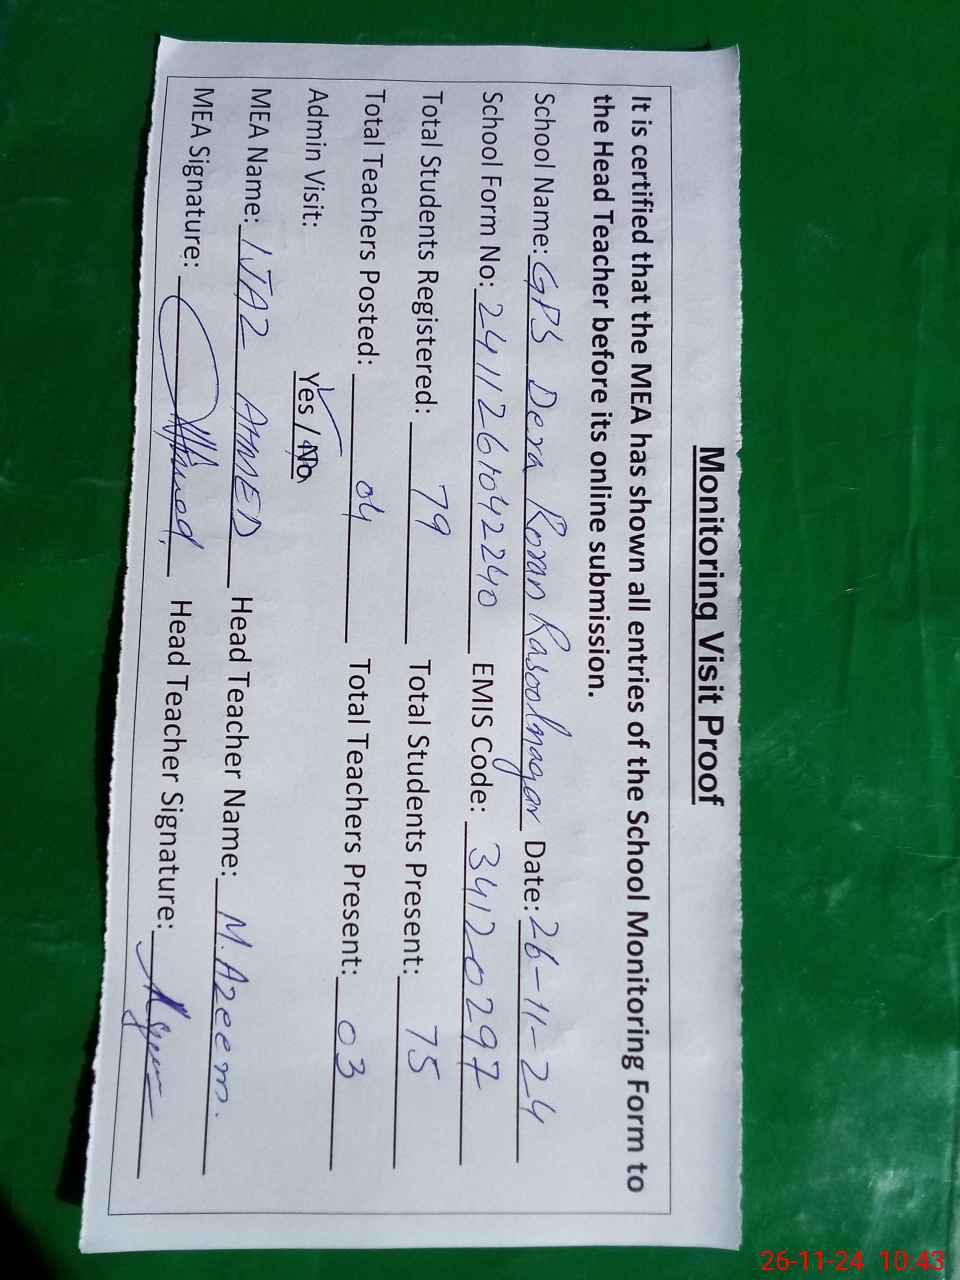 Monitoring Visit Proof
It is certified that the MEA has shown all entries of the School Monitoring Form to
the Head Teacher before its online submission.
School Name: GPS Dera Roran Rasoolnagar Date: 26-11-24
School Form No: 2411261042240 EMIS Code: 34120297
Total Students Registered: 79 Total Students Present: 75
Total Teachers Posted: 04 Total Teachers Present: 03
Admin Visit: Yes / No
MEA Name: IJAZ AHMED Head Teacher Name: M. Azeem.
MEA Signature: Head Teacher Signature:
26-11-24 10:43